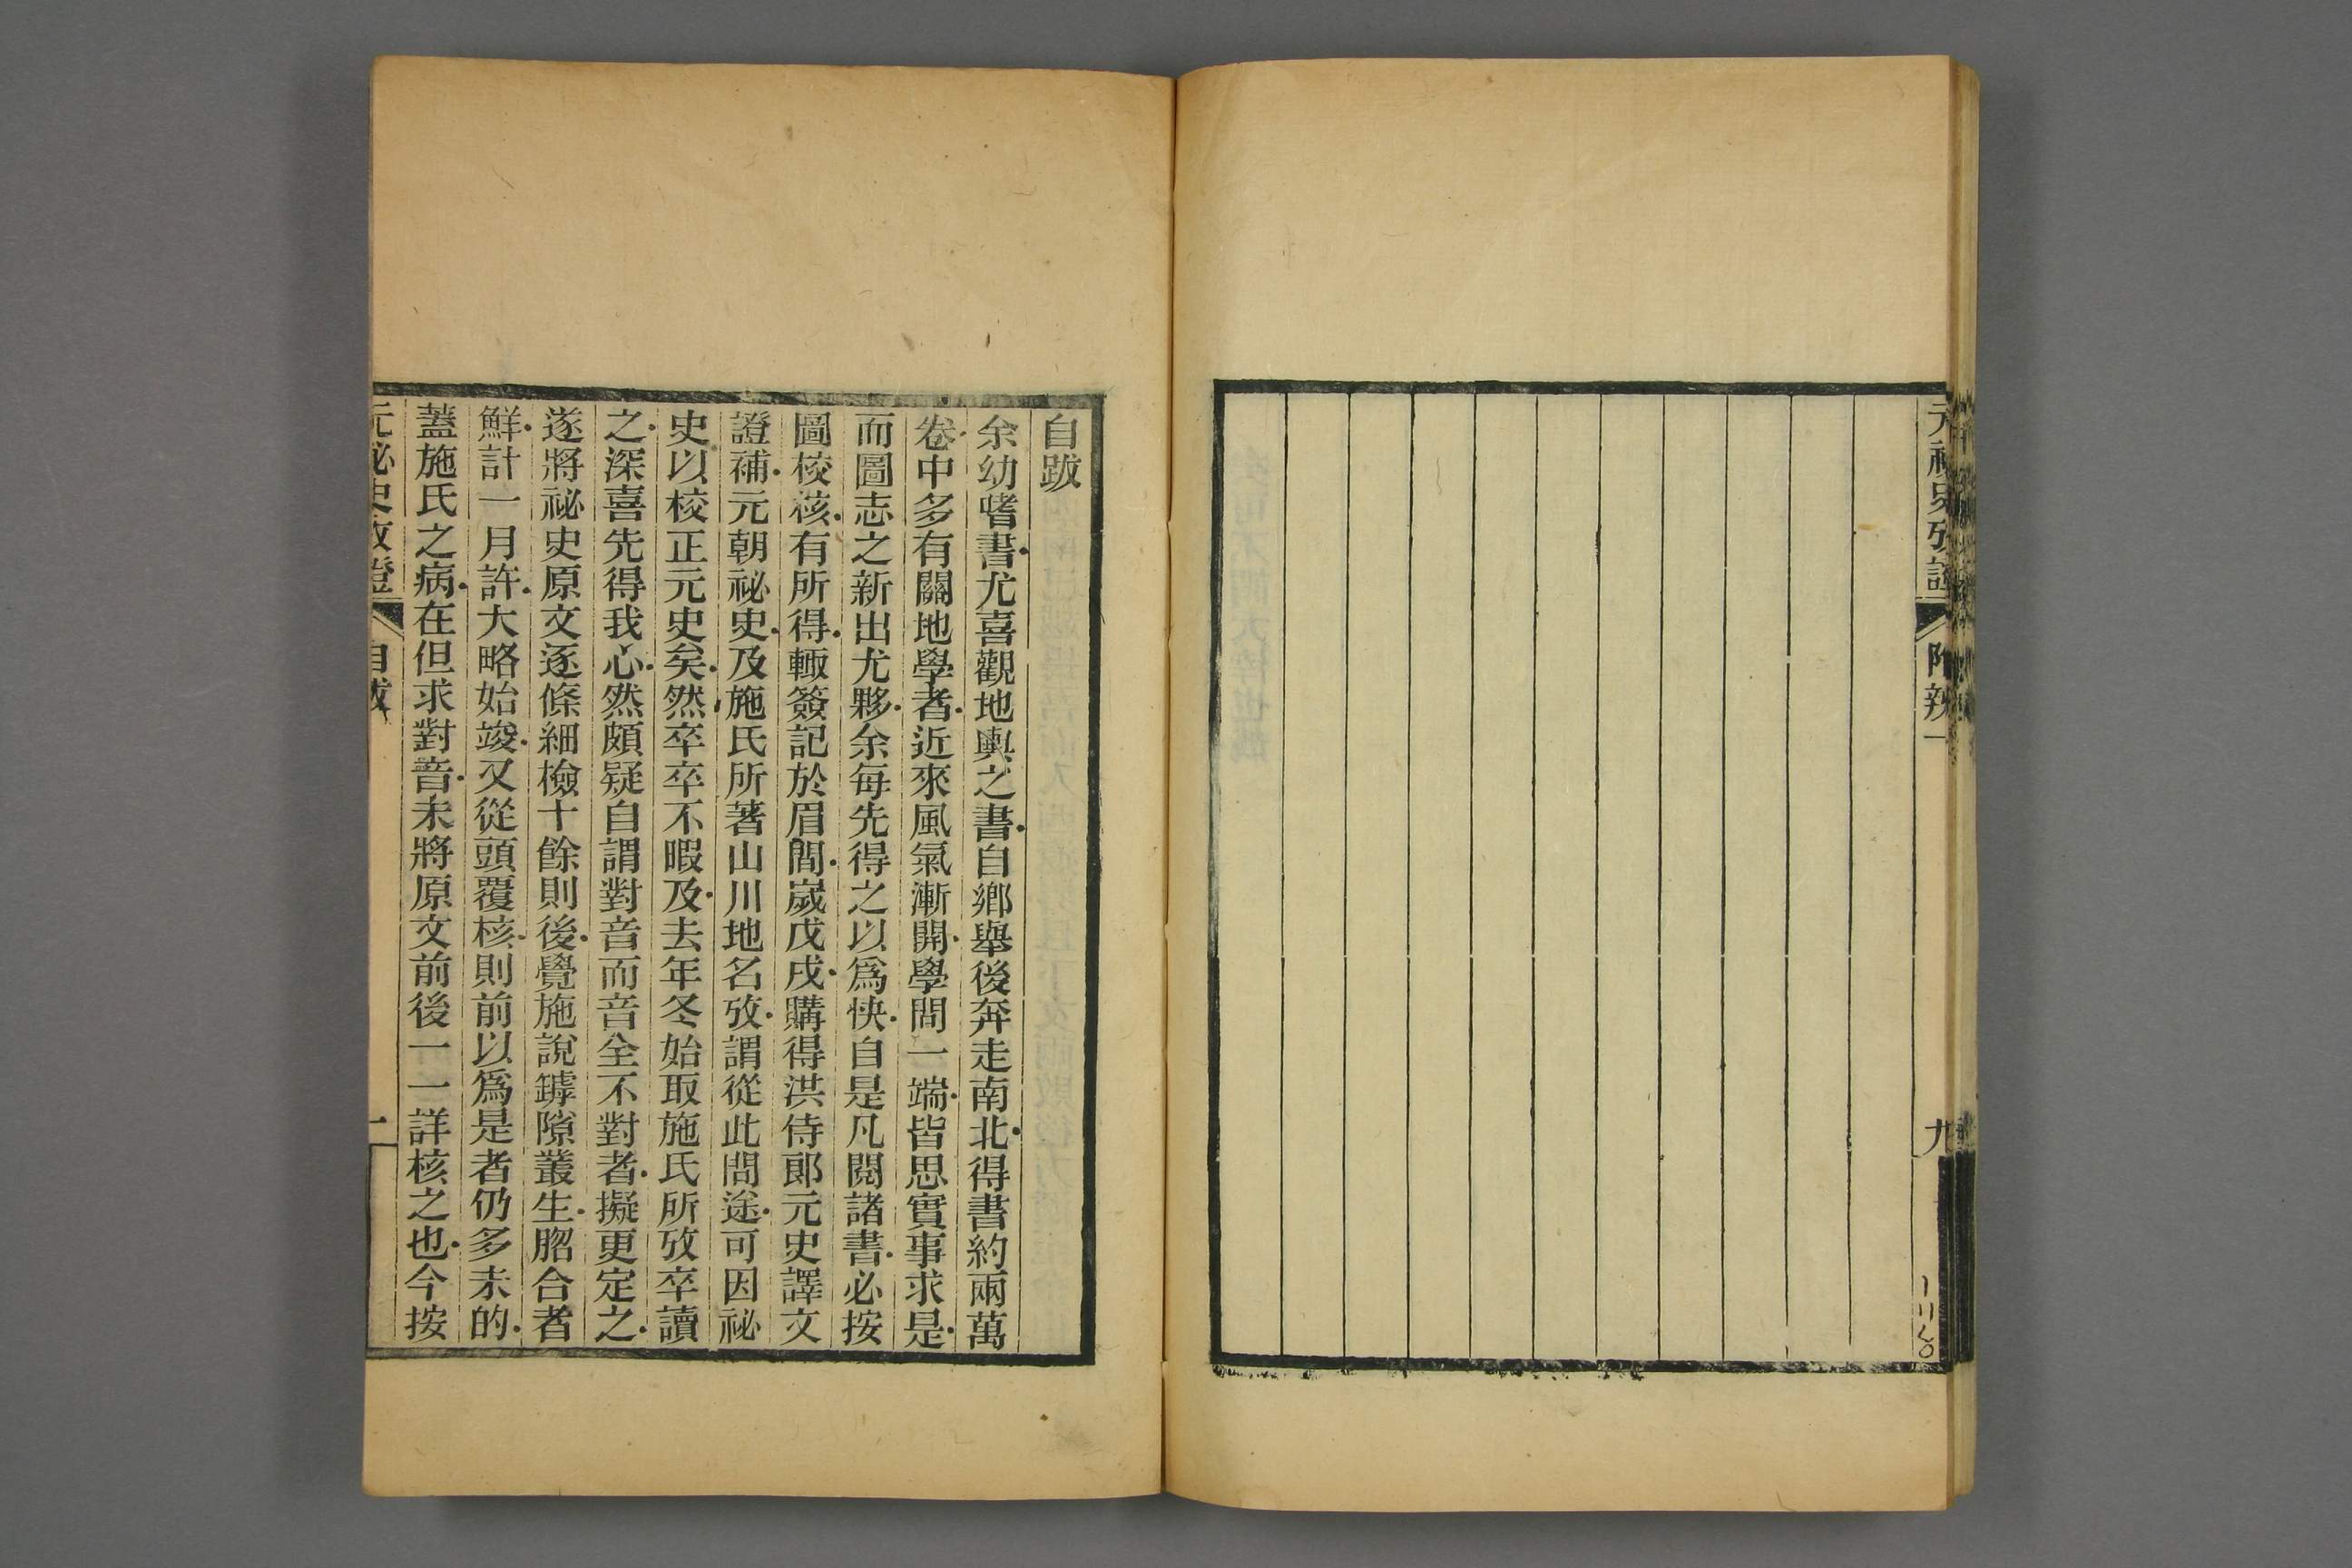 元祕史攷證
附辨一
九
自跋
余幼嗜書尤喜觀地輿之書自鄉舉後奔走南北得書約兩萬
卷中多有關地學者近來風氣漸開學問一端皆思實事求是
而圖志之新出尤夥余每先得之以爲快自是凡閱諸書必按
圖校核有所得輙簽記於眉間嵗戊戌購得洪侍郎元史譯文
證補元朝祕史及施氏所著山川地名攷謂從此問途可因祕
史以校正元史矣然卒卒不暇及去年冬始取施氏所攷卒讀
之深喜先得我心然頗疑自謂對音而音全不對者擬更定之
遂將祕史原文逐條細檢十餘則後覺施說罅隙叢生脗合者
鮮計一月許大略始竣又從頭覆核則前以爲是者仍多未的
蓋施氏之病在但求對音未將原文前後一一詳核之也今按
元祕史攷證
自跋
一